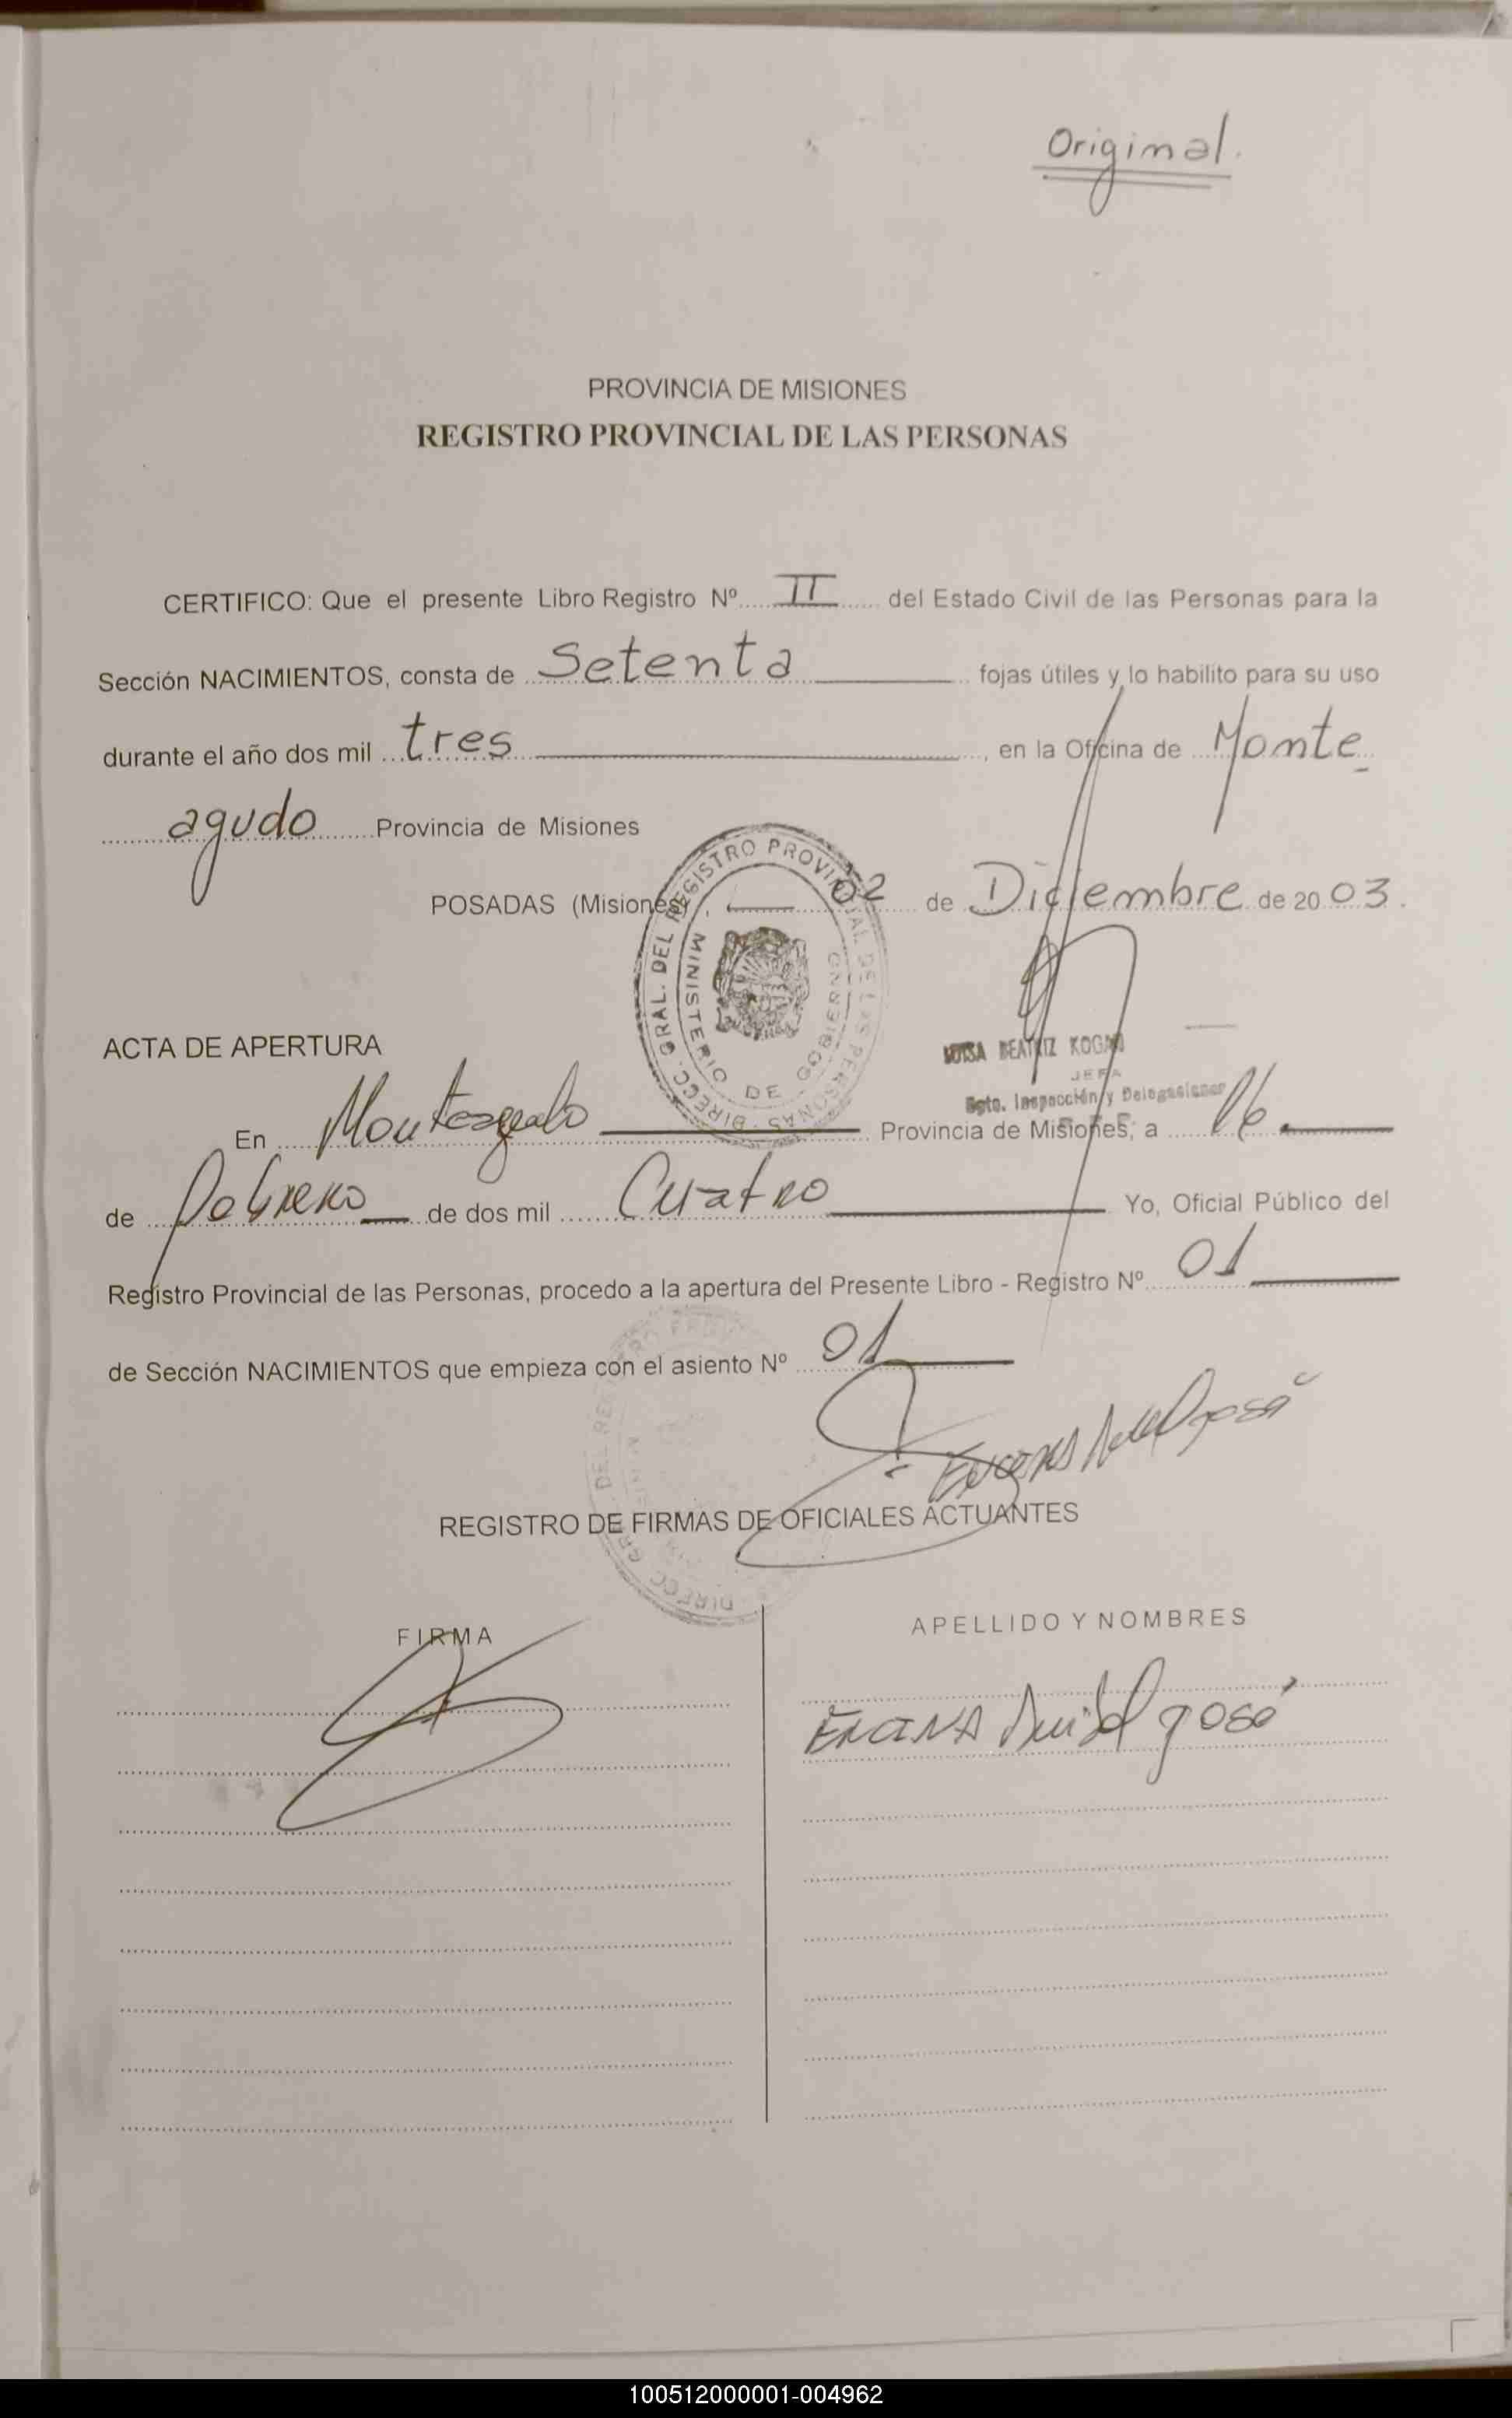 Original.
PROVINCIA DE MISIONES
REGISTRO PROVINCIAL DE LAS PERSONAS
CERTIFICO: Que el presente Libro Registro Nº II del Estado Civil de las Personas para la
Sección NACIMIENTOS, consta de Setenta fojas útiles y lo habilito para su uso
durante el año dos mil tres, en la Oficina de Monte
agudo Provincia de Misiones
POSADAS (Misiones), 02 de Diciembre de 2003.
DIRECC. GRAL. DEL REGISTRO PROVINCIAL DE LAS PERSONAS
MINISTERIO DE GOBIERNO
LUISA BEATRIZ KOGAN
JEFA
Dpto. Inspección y Delegaciones
ACTA DE APERTURA
En Monteagudo Provincia de Misiones, a 16
de Febrero de dos mil Cuatro Yo, Oficial Público del
Registro Provincial de las Personas, procedo a la apertura del Presente Libro - Registro Nº 01
de Sección NACIMIENTOS que empieza con el asiento Nº 01
REGISTRO DE FIRMAS DE OFICIALES ACTUANTES
FIRMA
APELLIDO Y NOMBRES
José
100512000001-004962